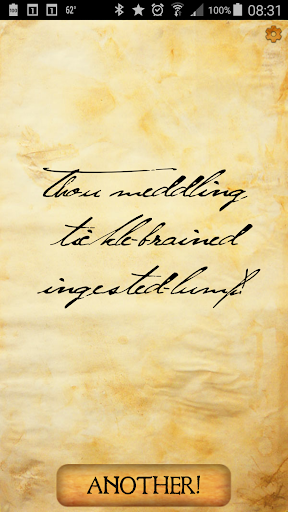 62° 100% 08:31
Thou meddling
tickle-brained
ingested-lump!
ANOTHER!